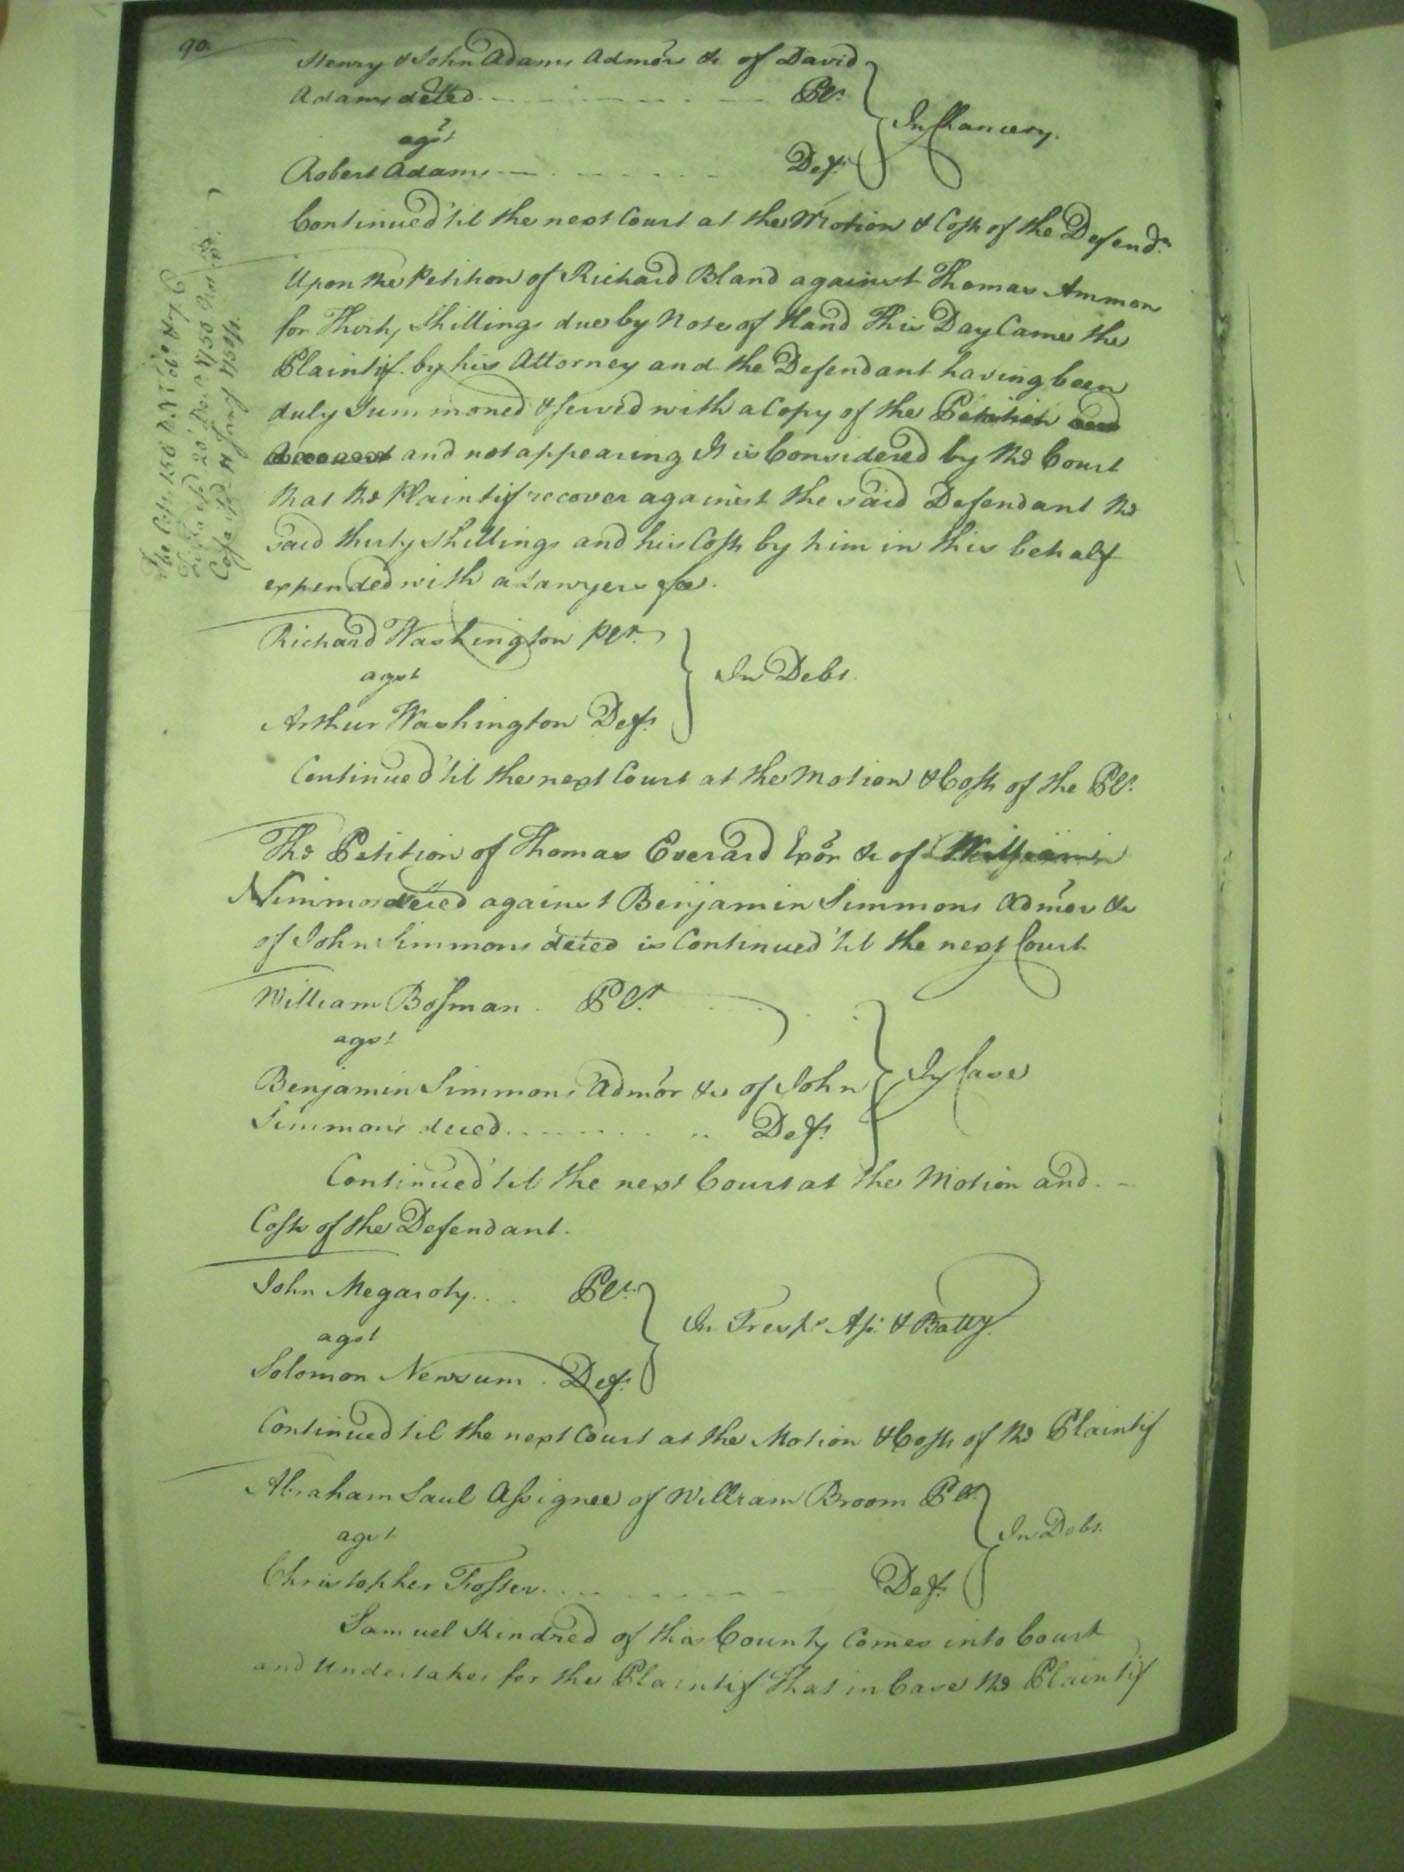 90
Henry & John Adams Admōrs &c of David
Adams deced Plt.
agst
Robert Adams Deft.
In Chancery.
Continued 'til the next Court at the Motion & Costs of the Defendt.
Upon the Petition of Richard Bland against Thomas Ammon
for Thirty Shillings due by Note of Hand This Day Came the
Plaintif by his Attorney and the Defendant having been
duly Summoned & served with a Copy of the Petition and
Account and not appearing It is Considered by the Court
that the Plaintif recover against the said Defendant the
said thirty shillings and his Costs by him in this behalf
expended with a Lawyers fee.
Richard Washington Plt.
agst
Arthur Washington Deft.
In Debt.
Continued 'til the next Court at the Motion & Costs of the Plt.
The Petition of Thomas Everard Exōr &c of William
Nimmo deced against Benjamin Simmons Admōr &c
of John Simmons deced is Continued 'til the next Court
William Bosman Plt.
agst
Benjamin Simmons Admōr &c of John
Simmons deced Deft.
In Case
Continued 'til the next Court at the Motion and
Costs of the Defendant.
John Megaroty Plt.
agst
Solomon Newsum Deft.
In Tresps. Ass. & Batty.
Continued til the next Court at the Motion & Costs of the Plaintif
Abraham Saul Assignee of William Broom Plt.
agst
Christopher Foster Deft.
In Debt.
Samuel Kindred of this County Comes into Court
and Undertakes for the Plaintif that in Case the Plaintif